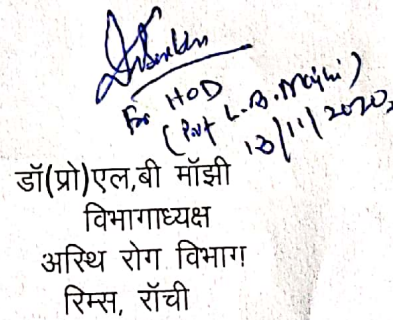 For HOD
(Prof L.B. Majhi)
13/11/2020
डॉ(प्रो)एल,बी मॉझी
विभागाध्यक्ष
अस्थि रोग विभाग
रिम्स, रॉची